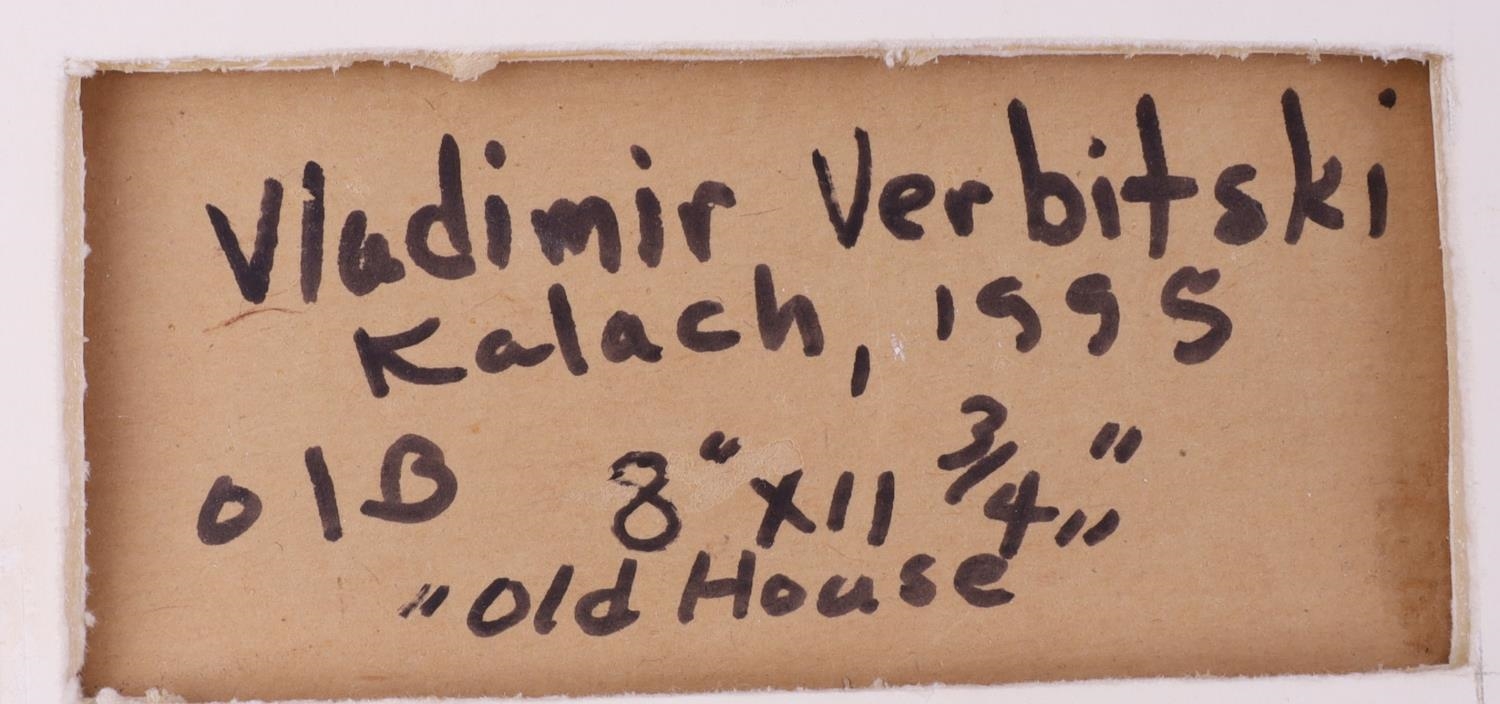 Vladimir Verbitski
Kalach, 1995
olB 8" x 11 3/4"
"Old House"